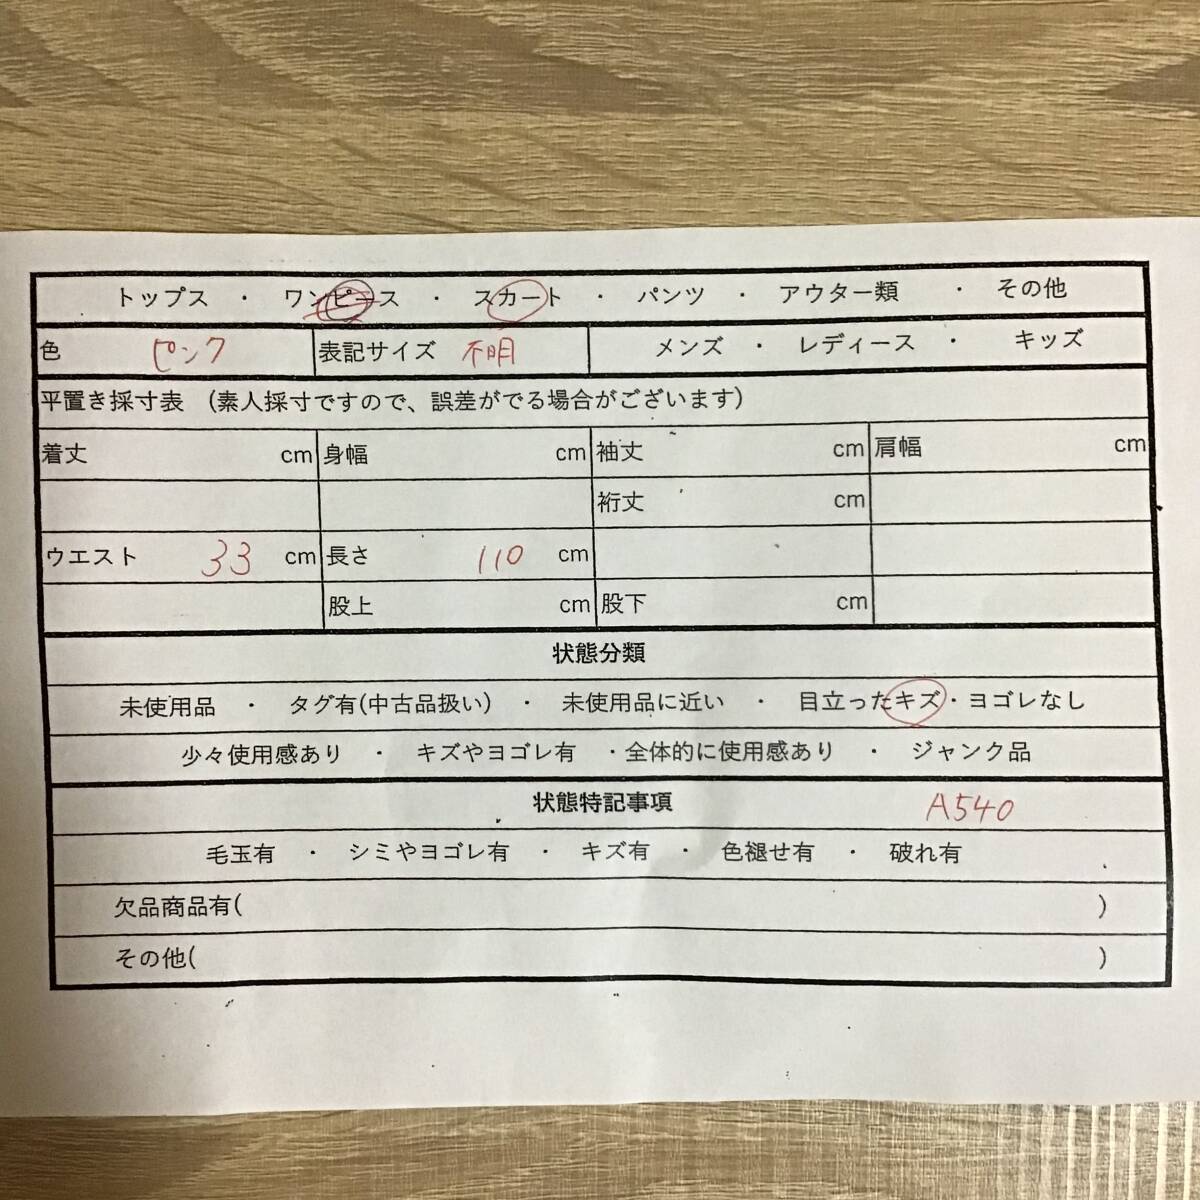 トップス ・ ワンピース ・ スカート ・ パンツ ・ アウター類 ・ その他
色 ピンク 表記サイズ 不明 メンズ ・ レディース ・ キッズ
平置き採寸表 (素人採寸ですので、誤差がでる場合がございます)
着丈 cm 身幅 cm 袖丈 cm 肩幅 cm
裄丈 cm
ウエスト 33 cm 長さ 110 cm
股上 cm 股下 cm
状態分類
未使用品 ・ タグ有(中古品扱い) ・ 未使用品に近い ・ 目立ったキズ・ヨゴレなし
少々使用感あり ・ キズやヨゴレ有 ・全体的に使用感あり ・ ジャンク品
状態特記事項 A540
毛玉有 ・ シミやヨゴレ有 ・ キズ有 ・ 色褪せ有 ・ 破れ有
欠品商品有( )
その他( )